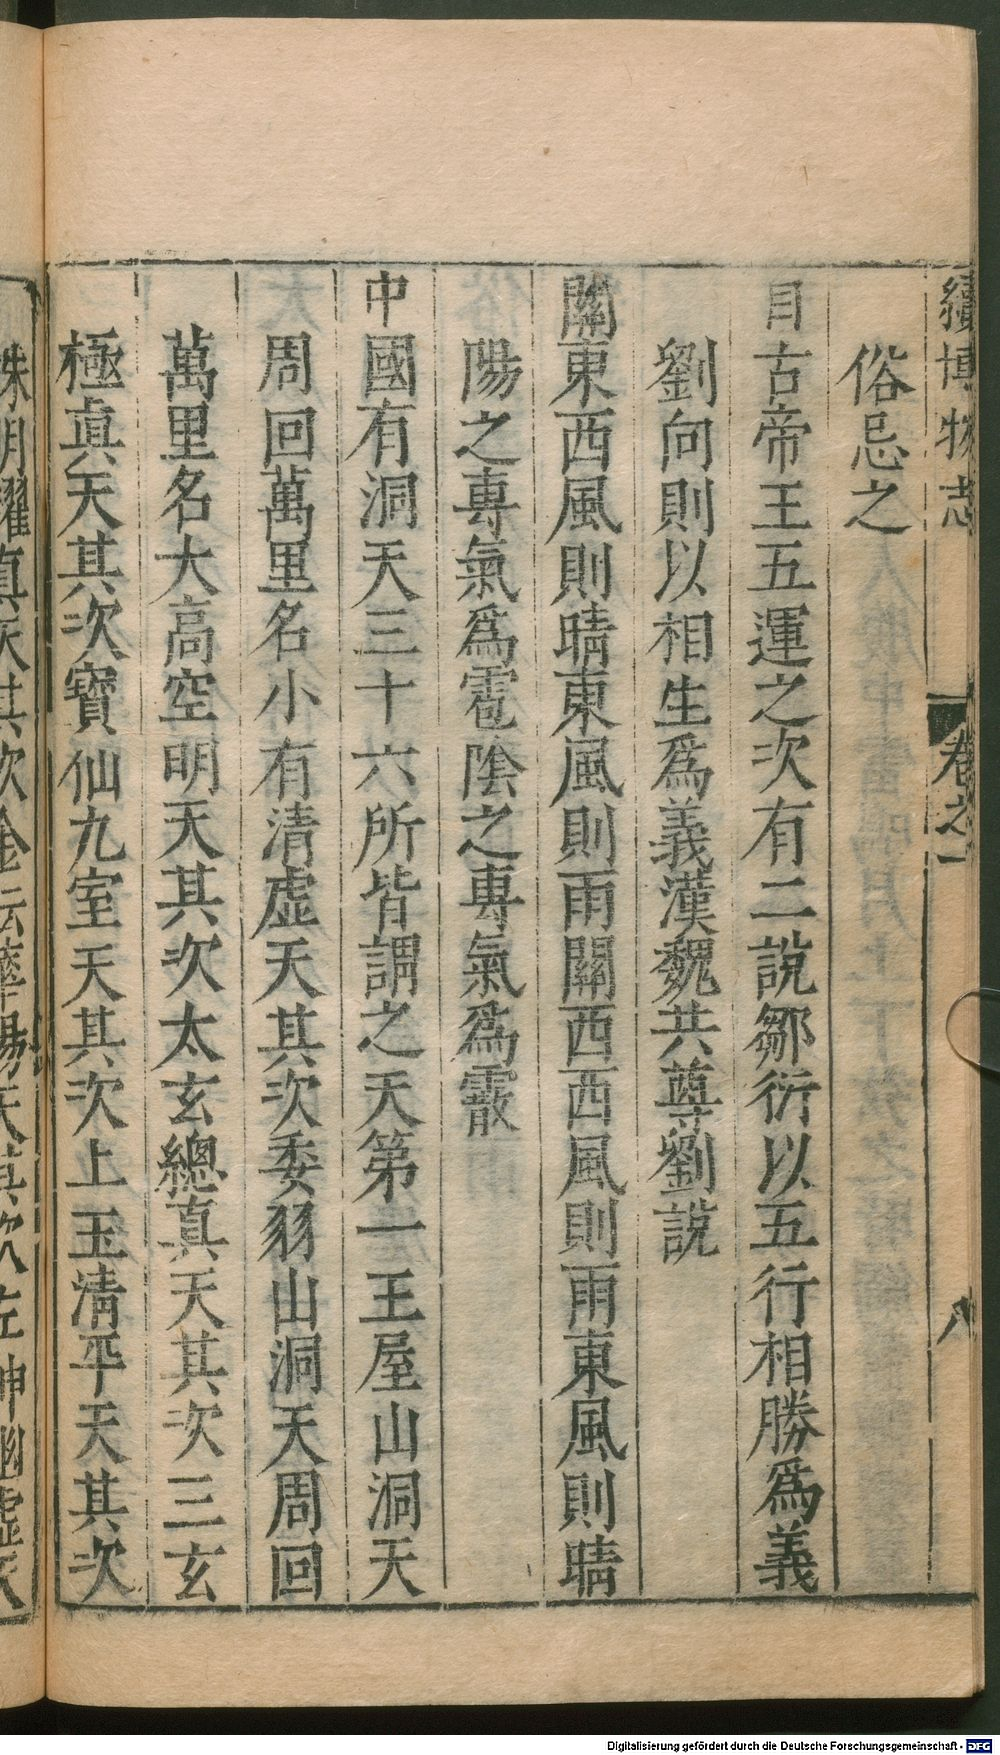 續博物志 卷之一 八
俗忌之
自古帝王五運之次有二說鄒衍以五行相勝爲義
劉向則以相生爲義漢魏共尊劉說
關東西風則晴東風則雨關西西風則雨東風則晴
陽之專氣爲雹陰之專氣爲霰
中國有洞天三十六所皆謂之天第一王屋山洞天
周回萬里名小有清虚天其次委羽山洞天周回
萬里名大高空明天其次太玄總真天其次三玄
極眞天其次寶仙九室天其次上玉淸平天其次
眞天其次金壇華陽天其次左神幽虚天
Digitalisierung gefördert durch die Deutsche Forschungsgemeinschaft - DFG